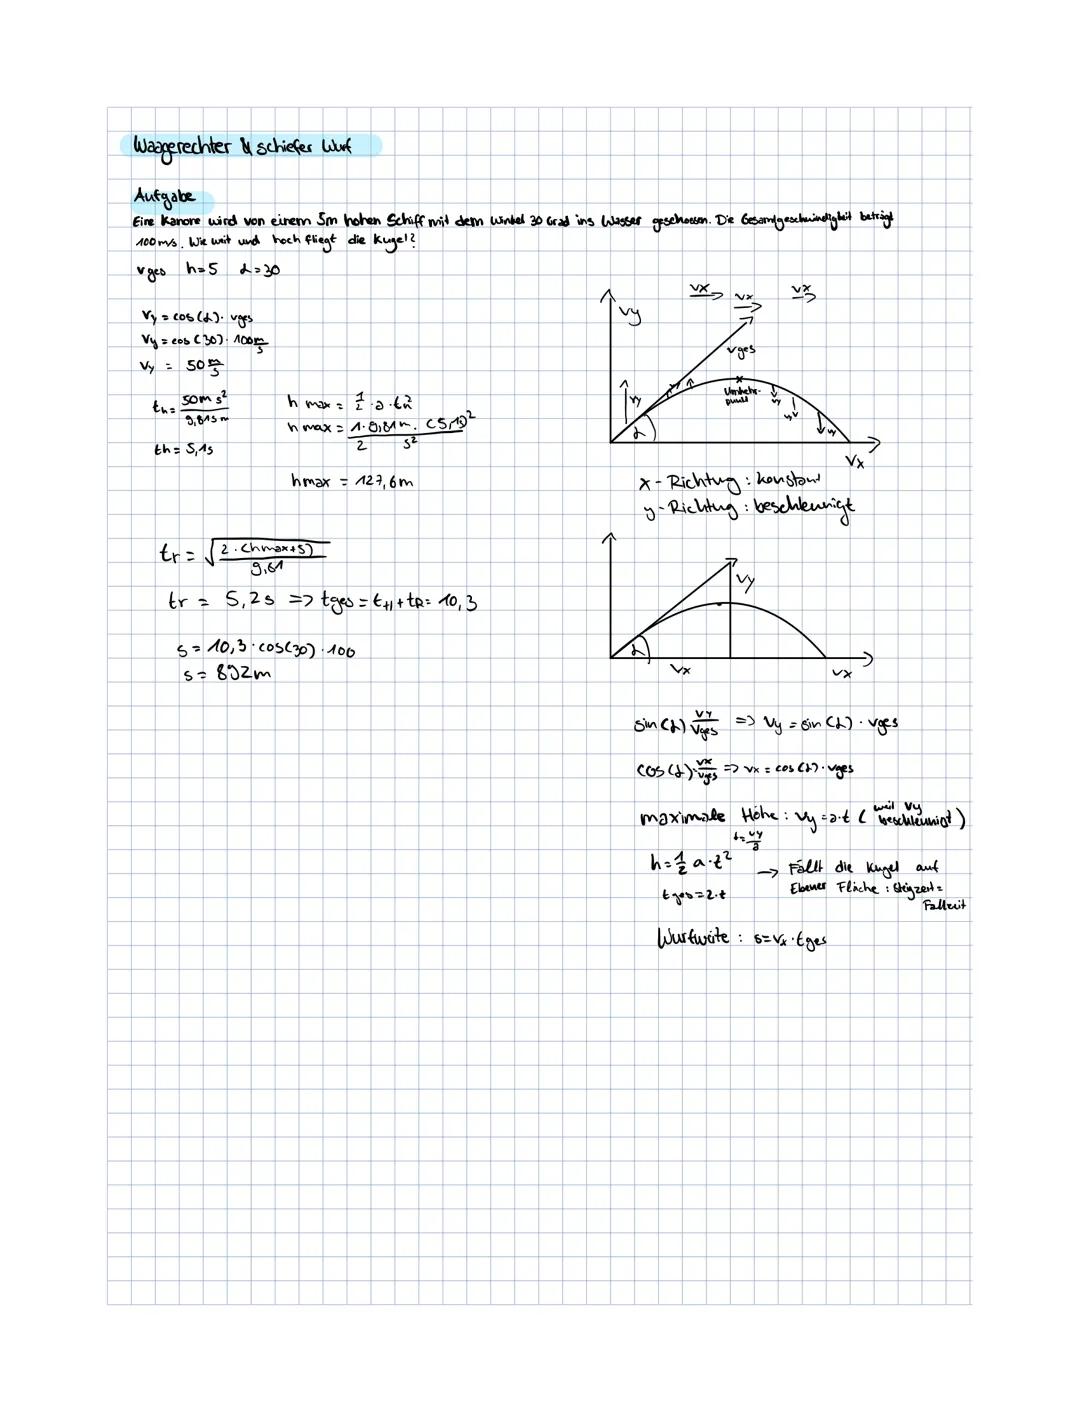 Waagerechter & schiefer Wurf
Aufgabe
Eine Kanone wird von einem 5m hohen Schiff mit dem Winkel 30 Grad ins Wasser geschossen. Die Gesamtgeschwindigkeit beträgt
100 m/s. Wie weit und hoch fliegt die Kugel?
vges h=5 α=30
Vy = cos(α) · vges
Vy = cos(30) · 100 m/s
Vy = 50 m/s
th = 50m s² / 9,81 s m
th = 5,1s
h max = 1/2 · a · th²
h max = 1 · 9,81m · (5,1s)² / 2 s²
hmax = 127,6m
tr = √(2 · (hmax+5) / 9,81)
tr = 5,2s => tges = tH + tR = 10,3
s = 10,3 · cos(30) · 100
s = 892m
vx vx vx
vy
vges
vy
Umkehr-
punkt
vy
vy
vy
α
Vx
x-Richtung : konstant
y-Richtung : beschleunigt
Vy
α
Vx
vx
sin(α) vy/vges => Vy = sin(α) · vges
cos(α) · vx/vges => vx = cos(α) · vges
maximale Höhe : Vy = a·t ( weil Vy beschleunigt )
t = vy/a
h = 1/2 a · t²
tges = 2·t
→ Fällt die Kugel auf
Ebener Fläche : Steigzeit =
Fallzeit
Wurfweite : s = Vx · tges